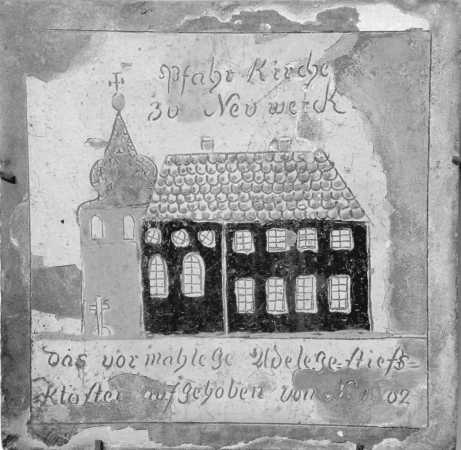 Pfahr Kirche
zu Neu werck
Das vor mahlege Adelege-stiefs=
Kloster aufgehoben von